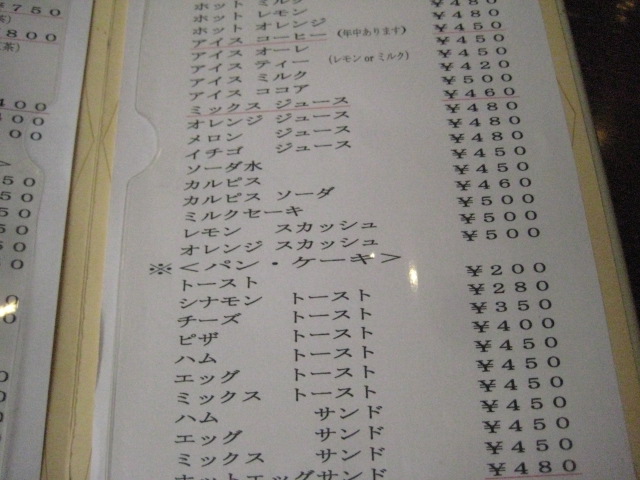 ¥７５０
¥８００
茶）
４００
４００
００
＞
５０
５０
５０
５０
００
ホット ミルク
ホット レモン ¥４８０
ホット オレンジ ¥４８０
アイス コーヒー （年中あります） ¥４５０
アイス オーレ ¥４５０
アイス ティー （レモン or ミルク） ¥４５０
アイス ミルク ¥４２０
アイス ココア ¥５００
ミックス ジュース ¥４６０
オレンジ ジュース ¥４８０
メロン ジュース ¥４８０
イチゴ ジュース ¥４８０
ソーダ水 ¥４５０
カルピス ¥４５０
カルピス ソーダ ¥４６０
ミルクセーキ ¥５００
レモン スカッシュ ¥５００
オレンジ スカッシュ ¥５００
※＜パン・ケーキ＞
トースト ¥２００
シナモン トースト ¥２８０
チーズ トースト ¥３５０
ピザ トースト ¥４００
ハム トースト ¥４５０
エッグ トースト ¥４５０
ミックス トースト ¥４５０
ハム サンド ¥４５０
エッグ サンド ¥４５０
ミックス サンド ¥４５０
ホットエッグサンド ¥４８０